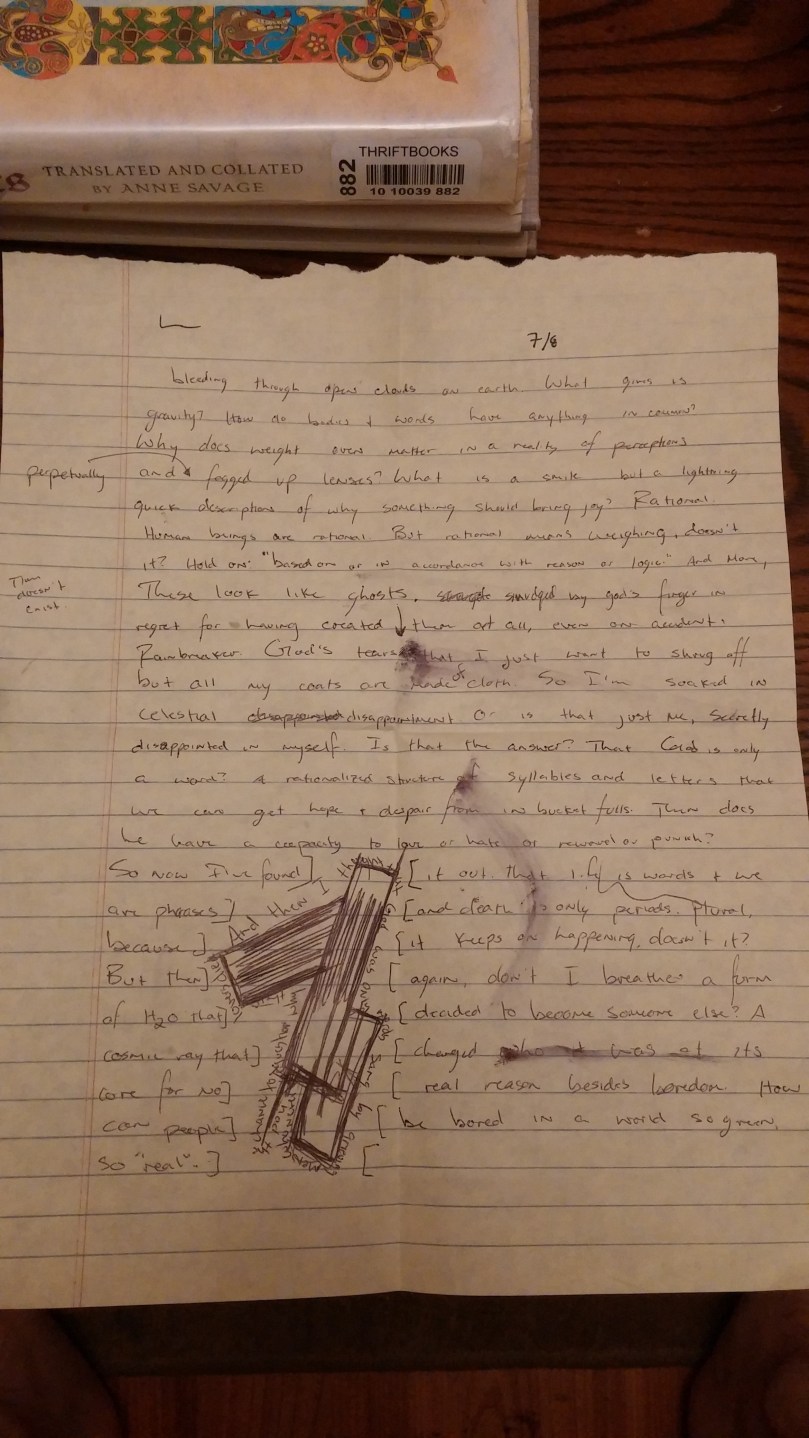 TRANSLATED AND COLLATED
BY ANNE SAVAGE
882
THRIFTBOOKS
10 10039 882
7/8
bleeding through open clouds on earth. What gives is
gravity? How do bodies & words have anything in
Why does weight over matter in a reality of perceptions
perpetually
and fogged up lenses? What is a smile but a lightning
quick description of why something should bring joy? Rational.
Human beings are rational. But rational means weighing, doesn't
it? Hold on: "based on or in accordance with reason or logic." And
doesn't
exist
These look like ghosts, smudged by god's finger in
regret for having created them at all, even on accident.
Rainbreaker. God's tears that I just want to shrug off
but all my coats are made of cloth. So I'm soaked in
celestial disappointment. Or is that just me, secretly
disappointed in myself. Is that the answer? That God is only
a word? A rationalized structure of syllables and letters that
we can get hope & despair from in bucket fulls. Then does
he have a capacity to love or hate or reward or punish?
So now I've found] [it out. That life is words & we
are phrases] [and death is only periods. Plural,
because] [it keeps on happening, doesn't it?
But then] [again, don't I breathe a form
of H2O that] [decided to become someone else? A
cosmic ray that] [changed who it was at its
core for no] [real reason besides boredom. How
can people] [be bored in a world so green,
so "real".] [
And then I
God was
by
men